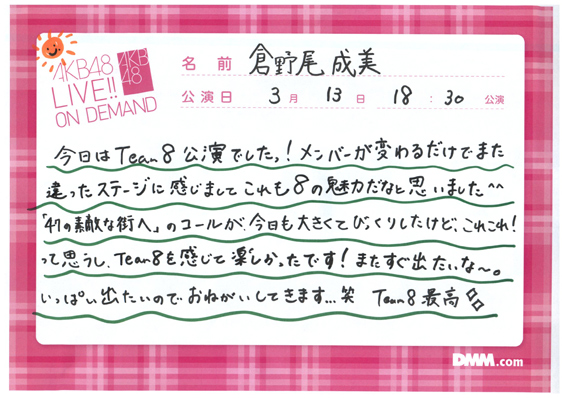 AKB48
LIVE!!
ON DEMAND
AKB
48
名前 倉野尾成美
公演日 3月 13日 18:30 公演
今日はTeam8公演でしたっ!メンバーが変わるだけでまた
違ったステージに感じましてこれも8の魅力だなと思いました^^
「47の素敵な街へ」のコールが、今日も大きくてびっくりしたけど、これこれ!
って思うし、Team8を感じて楽しかったです!またすぐ出たいな〜。
いっぱい出たいのでおねがいしてきます...笑 Team8最高
DMM.com